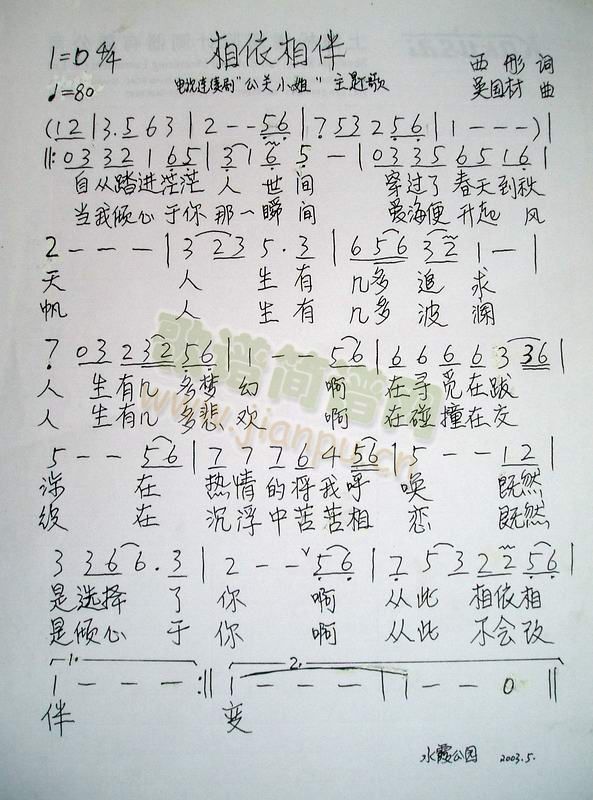 相依相伴
1=D 4/4
西彤 词
♩=80
电视连续剧"公关小姐"主题歌
吴国材 曲
(1 2 | 3. 5 6 3 | 2 - - 5 6 | 7 5 3 2 5 6 | 1 - - - ) |
||: 0 3 3 2 1 6 5 | 3 1 6 5 - | 0 3 3 5 6 5 1 6 |
自从踏进茫茫 人 世 间 穿过了 春天到秋
当我倾心于你 那一瞬间 爱海便 升起 风
2 - - - | 3 2 3 5 . 3 | 6 5 6 3 2 1 - |
天 人 生 有 几多 追 求
帆 人 生 有 几多 波 澜
7 0 3 2 3 2 5 6 | 1 - - 5 6 | 6 6 6 6 3 3 6 |
人 生有几 多梦 幻 啊 在寻觅在跋
人 生有几 多悲 欢 啊 在碰撞在交
5 - - 5 6 | 7 7 7 6 4 5 6 | 5 - - 1 2 |
涉 在 热情的将我呼 唤 既然
织 在 沉浮中苦苦相 恋 既然
3 3 6 6 . 3 | 2 - - ∨ 5 6 | 7 5 3 2 2 5 6 |
是选择 了 你 啊 从此 相依相
是倾心 于 你 啊 从此 不会改
1. 2.
1 - - - :|| 1 - - - | 1 - - 0 ||
伴 变
水霞公园 2003.5.
歌谱简谱网
www.jianpu.cn